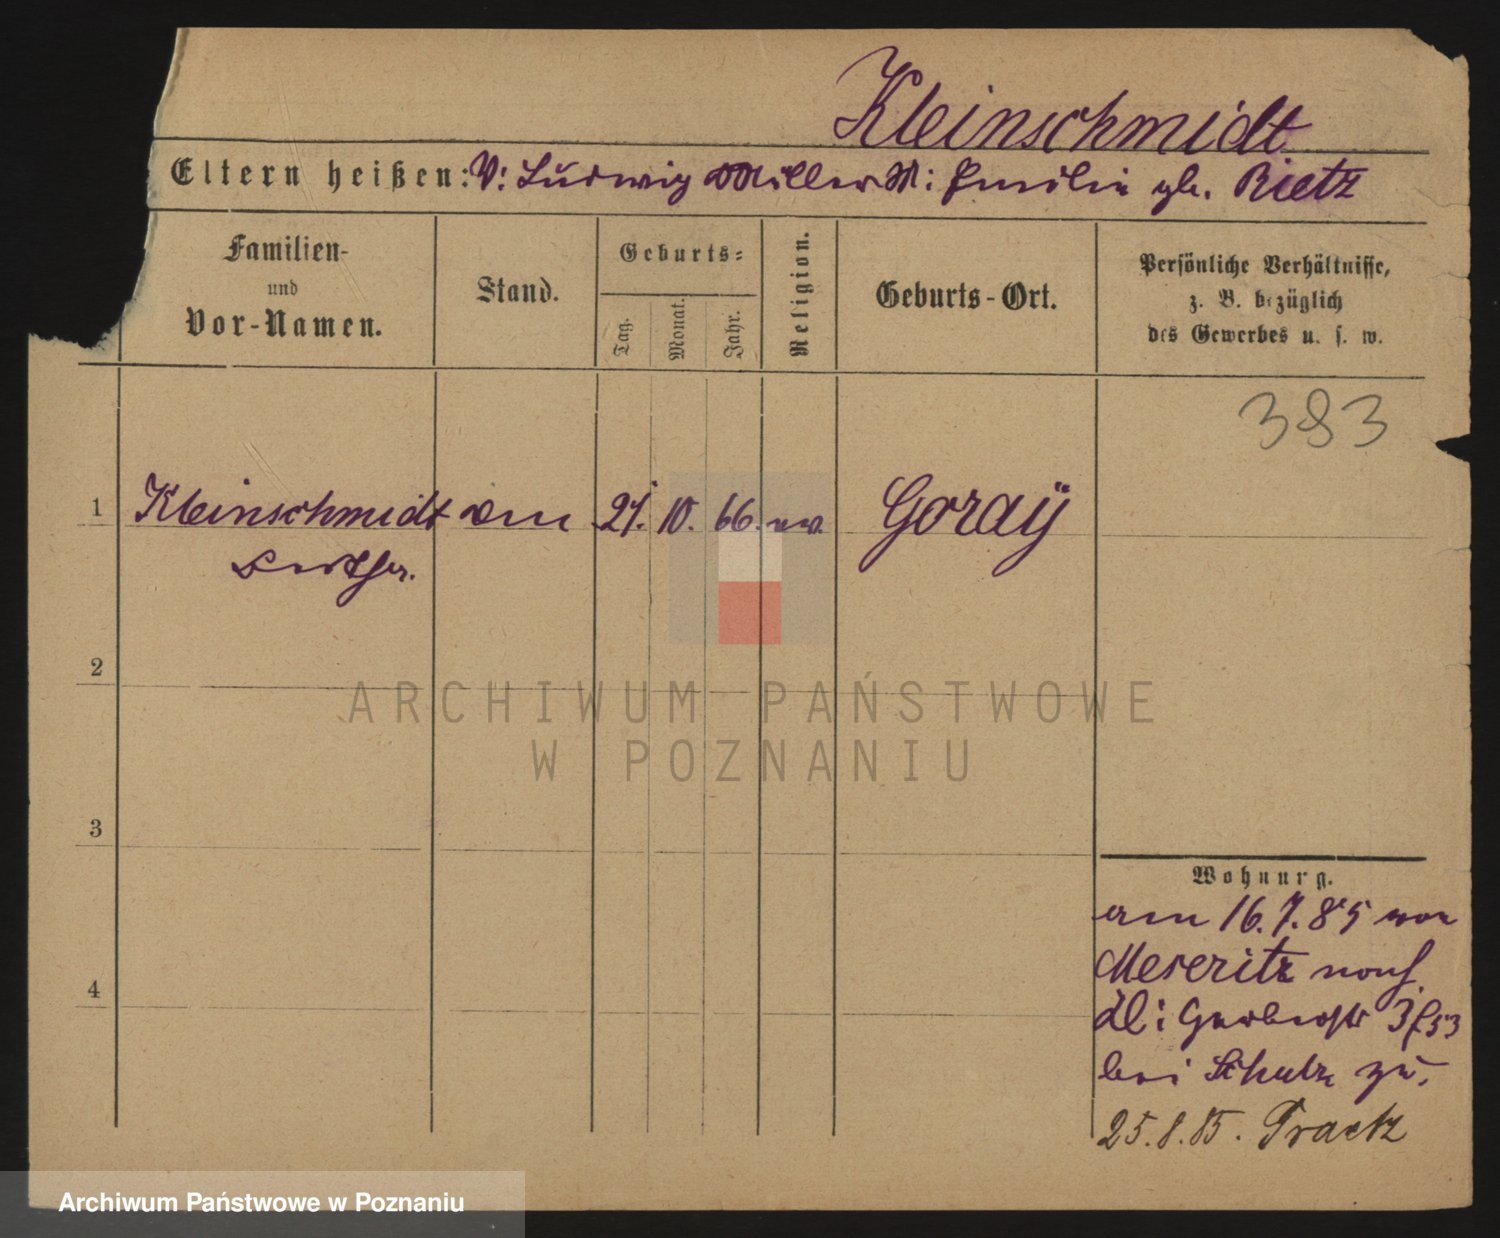 Kleinschmidt
Eltern heißen: V: Ludwig Müller M: Emilie gb. Rietz
Familien-
und
Vor-Namen.
Stand.
Geburts-
Tag.
Monat.
Jahr.
Religion.
Geburts-Ort.
Persönliche Verhältnisse,
z. B. bezüglich
des Gewerbes u. s. w.
383
1 Kleinschmidt 21. 10. 66. ev. Goraÿ
Bertha.
2
3
4
Wohnung.
am 16.7.85 von
Meseritz nach
Gerberstr
bei Schulz zu.
25.8.85.
ARCHIWUM PAŃSTWOWE
W POZNANIU
Archiwum Państwowe w Poznaniu